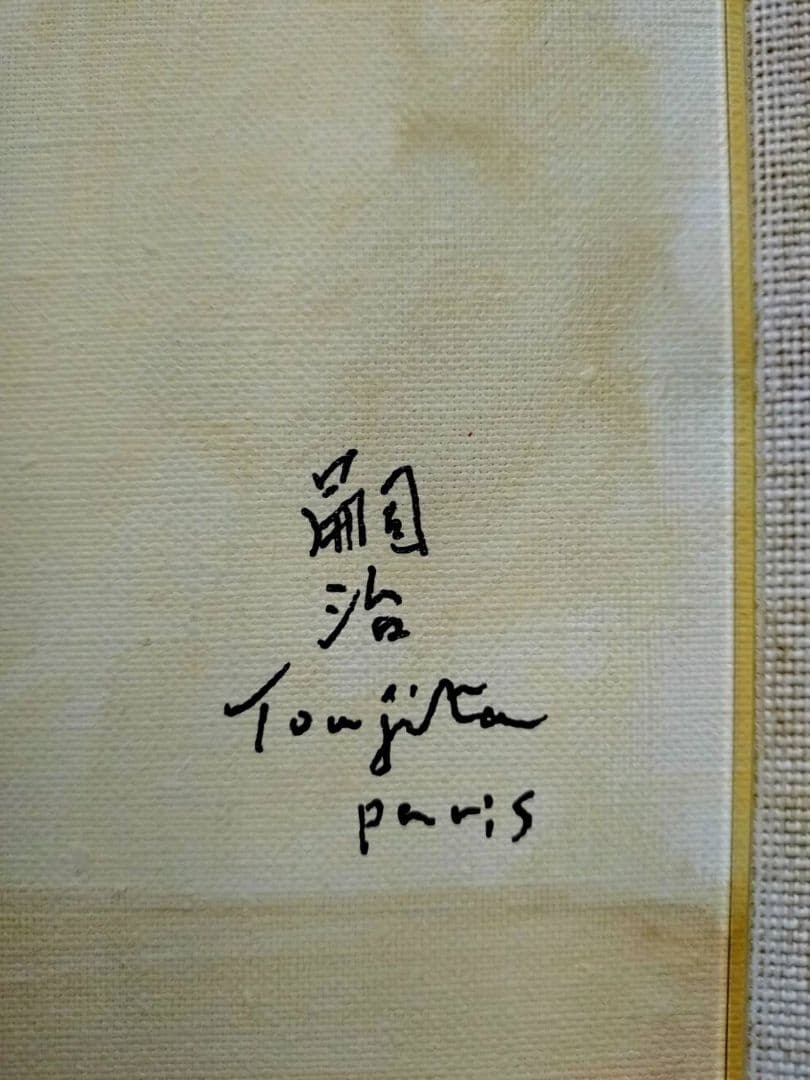 嗣
治
Foujita
paris